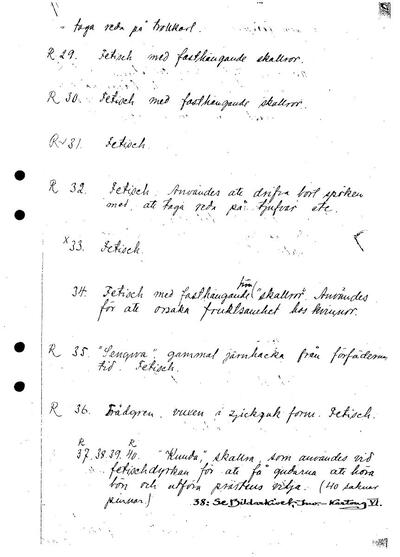 - taga reda på trollkarl.
R 29. Fetisch med fasthängande skallror.
R 30. Fetisch med fasthängande skallror.
R 31. Fetisch.
R 32. Fetisch. Användes att drifva bort spöken
med, att taga reda på tjufvar etc.
x 33. Fetisch.
34. Fetisch med fasthängande "skallror". Användes
för att orsaka fruktsamhet hos kvinnor.
R 35. "Sengwa", gammal järnhacka från förfädernas
tid. Fetisch.
R 36. Trädgren, vuxen i zickzack form. Fetisch.
R R
37. 38. 39. 40. "Kunda", skallra, som användes vid
fetischdyrkan för att få gudarna att höra
bön och utföra prästens vilja. (40 saknar
pinnar.) 38: Se Bildarkivet, Kartong VI.